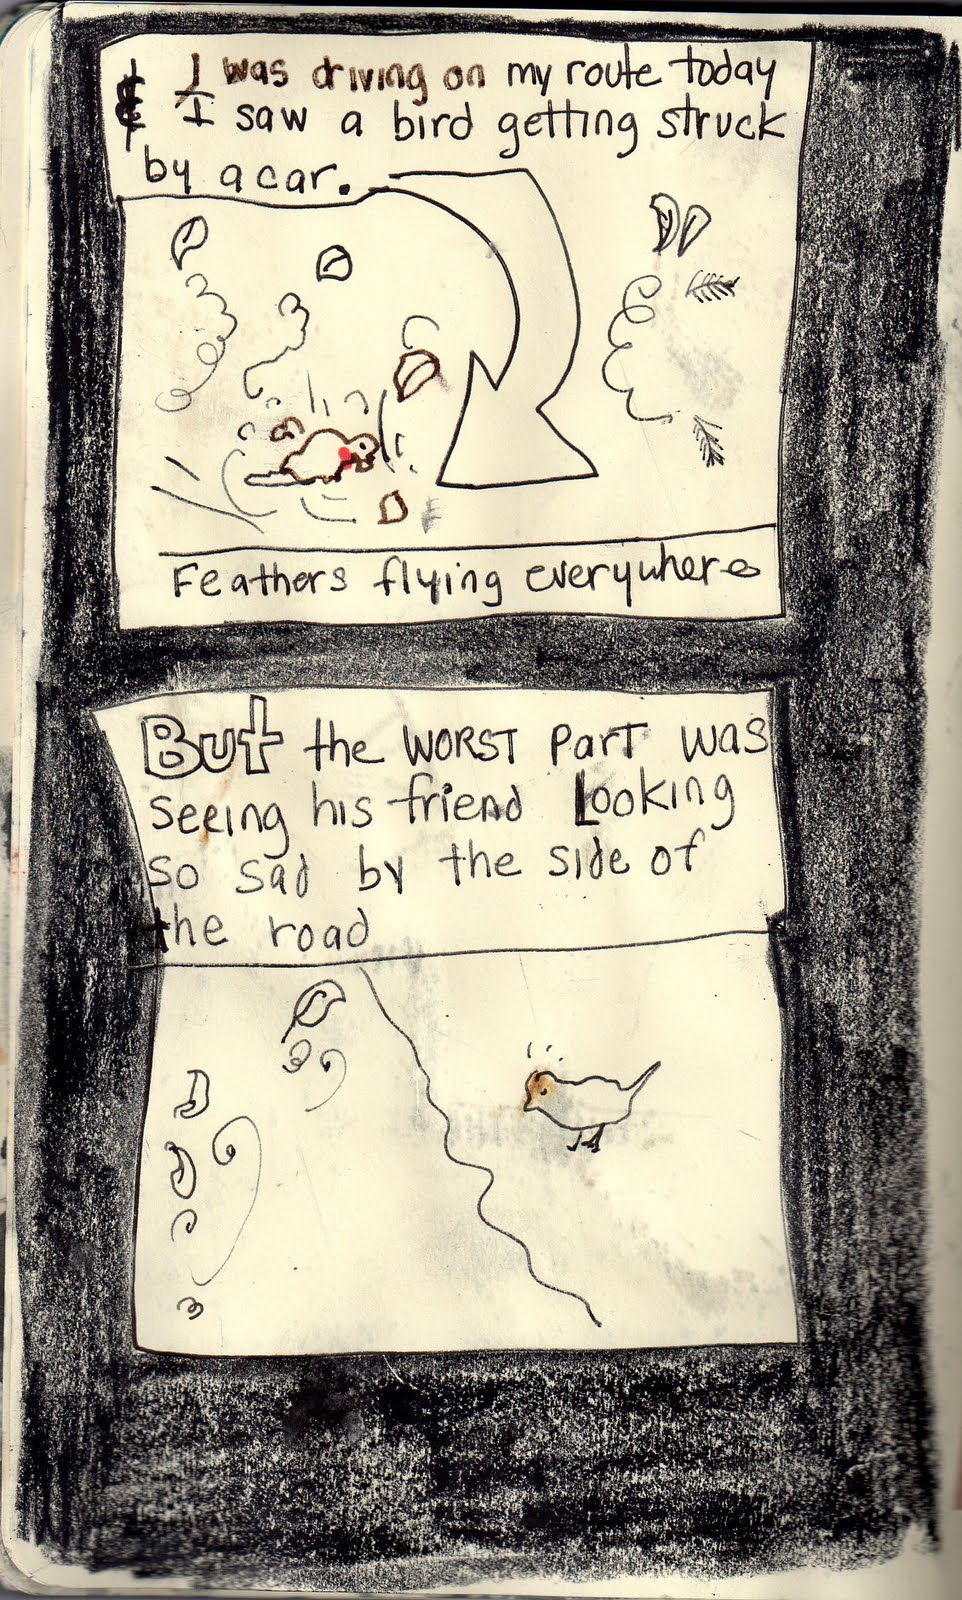 I was driving on my route today
& I saw a bird getting struck
by a car.
Feathers flying everywhere
But the WORST Part was
seeing his friend Looking
so sad by the side of
the road